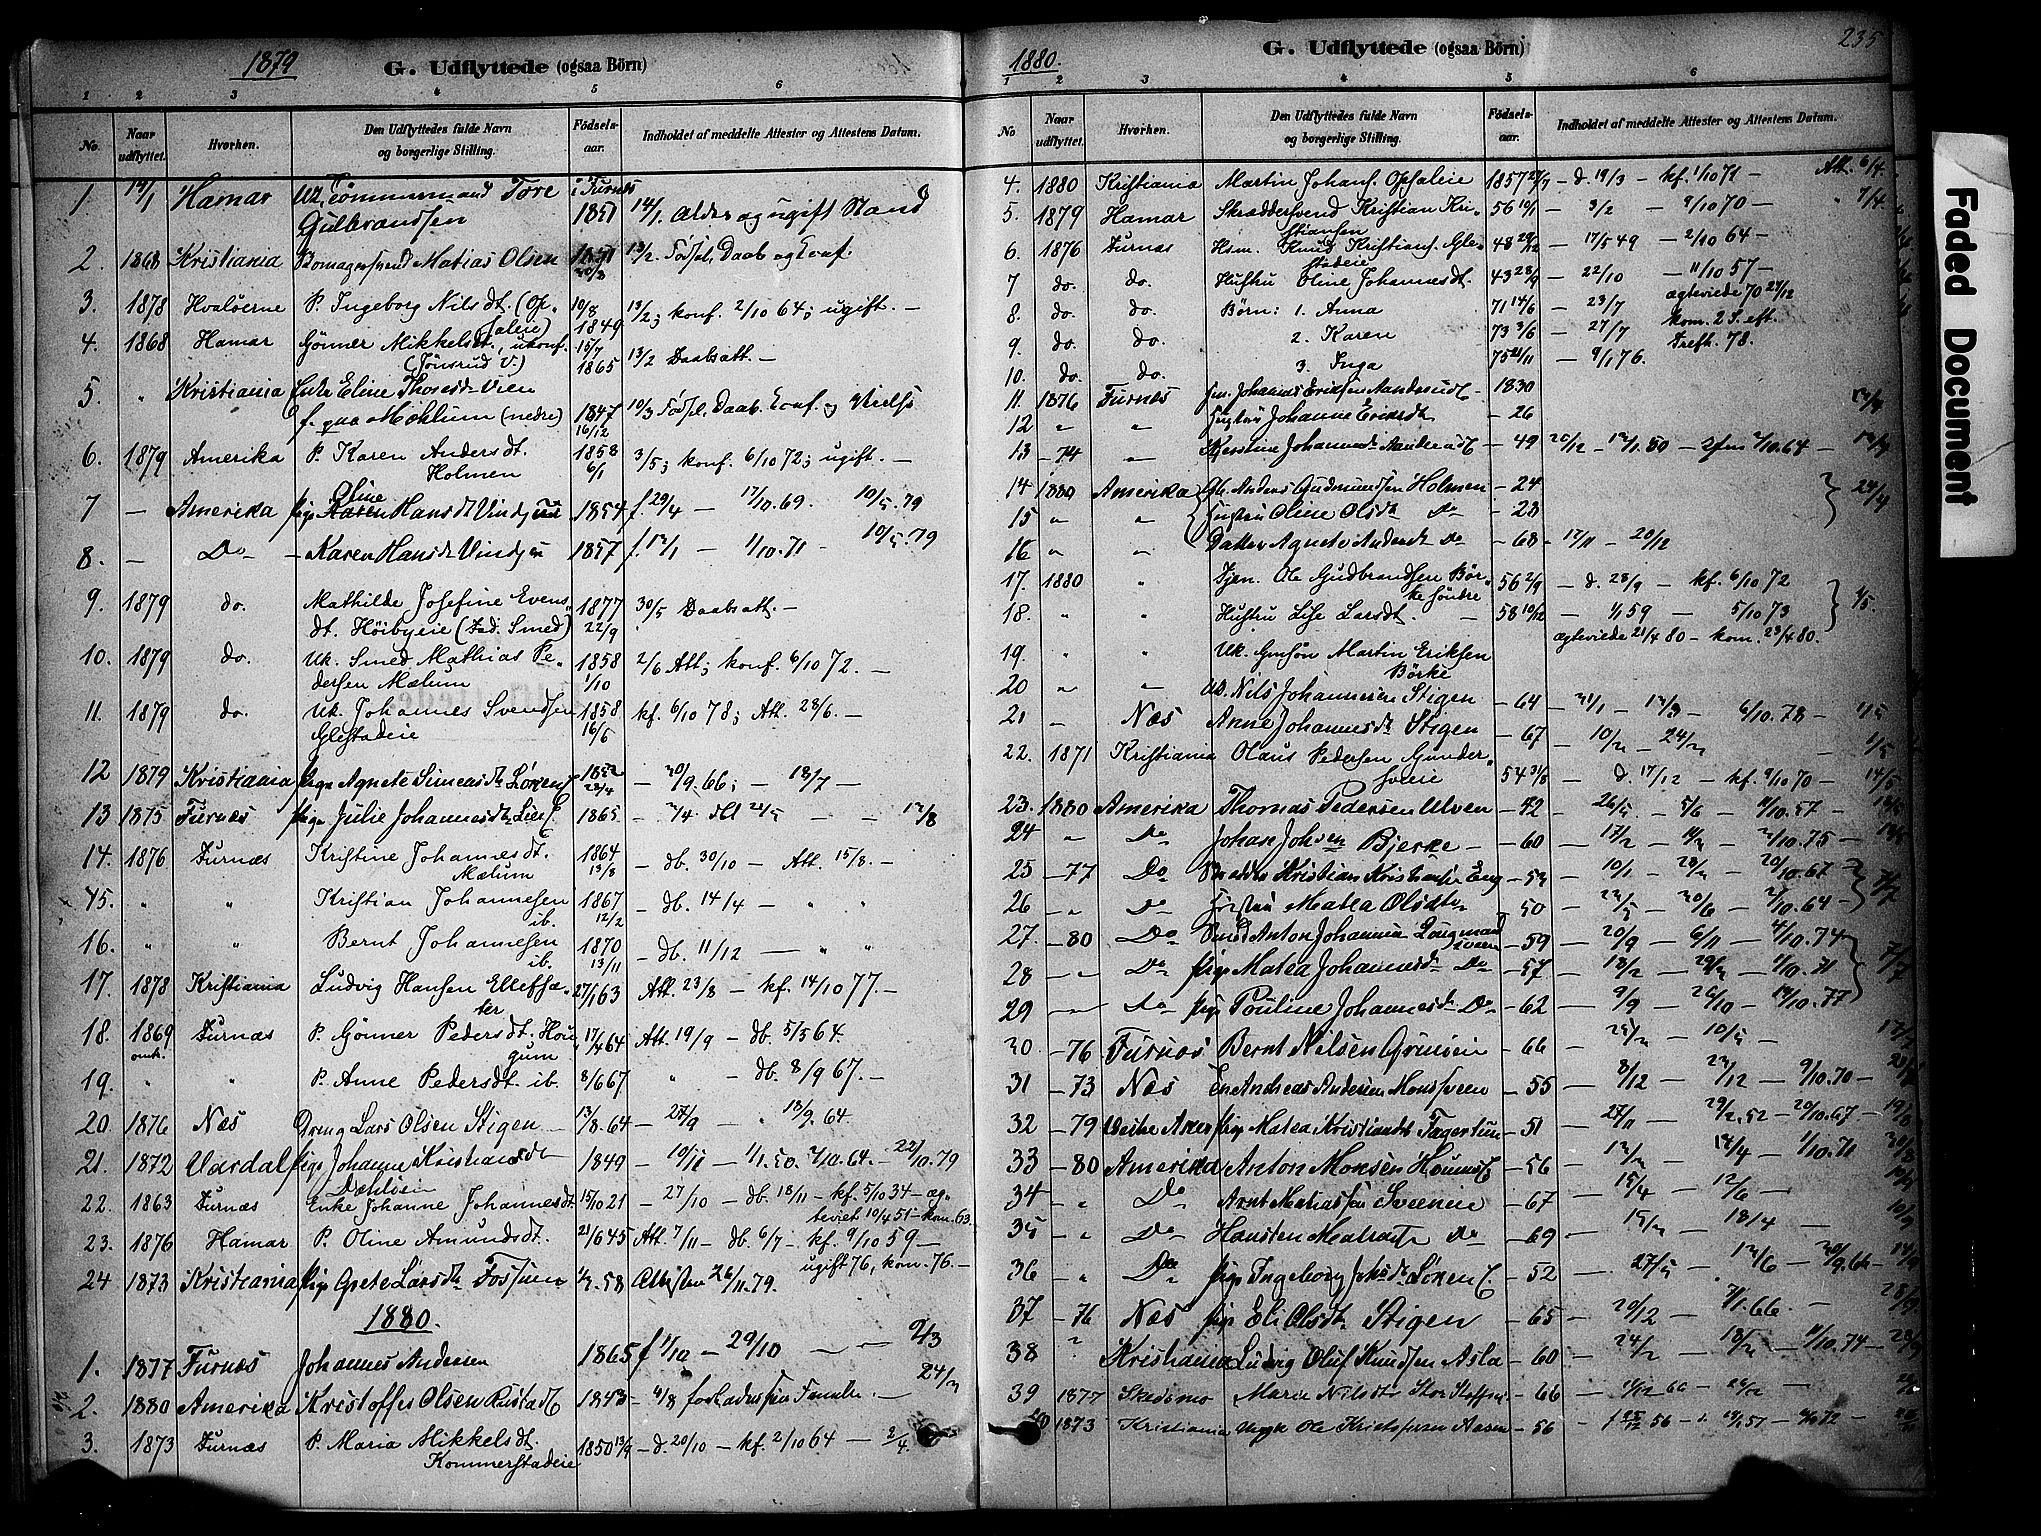 1879
G. Udflyttede (ogsaa Börn)
1 2 3 4 5 6
No. Naar udflyttet. Hvorhen. Den Udflyttedes fulde Navn og borgerlige Stilling. Fødsels-aar. Indholdet af meddelte Attester og Attestens Datum.
1 14/1 Hamar Uk. Tömmermand Tore i Furnes
Gulbrandsen 1851 14/1 Alder og ugift Stand
2. 1868 Kristiania Matias Olsen 1851 13/2. Födsel, Daab og Conf.
20/3
3. 1878 Hvalöerne P. Ingeborg Nilsdt. (Op- 10/8
saleie) 1849 13/2; konf. 2/10 64; ugift. —
4. 1868 Hamar Gönner Mikkelsdt., ukonf. 15/7
(Jönsrud V.) 1865 13/2 Daabsatt. —
5 " Kristiania Enke Eline Thoresdt Vien
f. paa Mæhlum (nedre) 1847 10/3 Födsel, Daab, Conf. og Vielse
16/12
6. 1879 Amerika P. Karen Andersdt. 1858 3/5; konf. 6/10 72; ugift. —
Holmen 6/1
7 — Amerika Pige Oline Hansdt Vindjuu 1854 f. 29/4 — 17/10.69. 10/5.79
8. — Do — Karen Hansdt Vindjuu 1857 f. 12/1 — 1/10.71 — 10/5.79
9. 1879 do. Mathilde Josefine Evens- 1877 30/5 Daabsatt. —
dt. Höibyeie (Fad. Smed) 22/9
10. 1879 do. Uk. Smed Mathias Pe- 1858 2/6 Att; konf. 6/10 72. —
dersen Mælum 1/10
11. 1879 do. Uk. Johannes Svendsen 1858 kf. 6/10 78; Att. 28/6. —
Glestadeie 16/5
12 1879 Kristiania Pige Agnete Simensdt Löken 1852 — 20/9.66; — 18/7 —
23/4
13 1875 Furnes Pige Julie Johannesdt Lie 1865 — 2/4 — — 12/8
14. 1876 Furnæs Kristine Johannesdt. 1864 — db. 30/10 — Att. 15/8. —
Mælum 13/8
15. " " Kristian Johannesen 1867 — db. 14/4 — " "
ib. 12/2
16. " " Bernt Johannesen 1870 — db. 11/12 — " "
ib. 13/11
17. 1878 Kristiania Ludvig Hansen Ellefsæ- 27/1 63 Att. 23/8 — kf. 14/10 77. —
ter
18. 1869 Furnæs P. Gönner Pedersdt. Hou- 17/4 64 Att. 19/9 — db. 5/5 64.
omtr. gum
19. " " P. Anne Pedersdt. ib. 8/6 67 " — db. 8/9 67. —
20 1876 Næs Dreng Lars Olsen Stigen 13/8.64 — 27/9 " 13/9. 64.
21. 1872 Vardal Pige Johanne Kristiansdt 1849 — 10/11 — 1/1.50. 2/10.64. — 22/10.79
Dæhlseie
22. 1863 Furnæs Enke Johanne Johannesdt. 15/10 21 — 27/10 — db. 18/11 — kf. 5/10 34 — æg-
teviet 10/4 51 — kom. 63.
23. 1876 Hamar P. Oline Amundsdt. 21/6 45 Att. 7/11 — db. 6/7 — kf. 9/10 59 —
ugift 76, kom. 76. —
24 1873 Kristiania Pige Grete Larsdt Fossum 58 Attesten 26/11.79.
1880.
1. 1877 Furnes Johannes Andersen 1865 f 11/10 — 29/10 — — 2/3
2. 1880 Amerika Kristoffer Olsen Rustad 1843 — 4/8 forlader sin Familie. — 24/3
3. 1873 Furnæs P. Maria Mikkelsdt. 1850 13/9 — d. 20/10 — kf. 2/10 64 — 2/4.
Kommerstadeie
235
1880.
G. Udflyttede (ogsaa Börn)
1 2 3 4 5 6
No Naar udflyttet. Hvorhen. Den Udflyttedes fulde Navn og borgerlige Stilling. Fødsels-aar. Indholdet af meddelte Attester og Attestens Datum.
4. 1880 Kristiania Martin Johans. Opsaleie 1857 27/7 — d. 19/3 — kf. 1/10 71 — Att. 6/4.
5. 1879 Hamar Skræddersvend Kristian Kri- 56 19/1 — 3/2 — 9/10 70 — " 7/4.
stiansen
6. 1876 Furnæs Hsm. Knud Kristians. Gle- 48 29/12 — 17/5 49 — 2/10 64 —
stadeie
7 do. do. Hustru Oline Johannesdt. 43 28/9 — 22/10 — 11/10 57 —
ægteviede 70 27/12
8. do. do. Börn: 1. Anna 71 14/6 — 23/7 kom. 2 S. eft.
9. do. do. 2. Karen 73 3/6 — 27/7 Trefh. 78.
10. do. do. 3. Inga 75 21/11 — 9/1 76.
11. 1876 Furnes Johannes Eriksen Aanderud 1830
12 " " Hustru Johanne Eriksdt — 26 12/4
13 — 74 " Kjerstine Johannesdt Aanderud — 49 20/12 — 12/1.50 — 2/10.64 — 12/4
14 1880 Amerika Anders Gudmundsen Holmen — 24
15 " " Hustru Oline Olsdt Do — 23 24/4
16 " " Datter Agnete Andersdt Do — 68 — 17/11 — 20/12
17. 1880 " Tjen. Ole Gudbrandsen Bör- 56 2/9 — d. 28/9 — kf. 6/10 72
ke söndre
18. " " Hustru Lise Larsdt. — 58 10/12 — 1/1 59 — 5/10 73 1/5.
ægteviede 21/4 80 — kom. 23/4 80.
19. " " Uk. Gmsön Martin Eriksen
Börke
20 " " Uk. Nils Johannesen Stigen — 64 — 31/1 — 13/3 — 6/10.78 — 1/5
21 — Næs Anne Johannesdt Stigen — 67 — 10/2 — 24/2 — 1/5
22. 1871 Kristiania Olaus Pedersen Gunder-
sveie 54 31/8 — d. 17/12 — kf. 9/10 70 — 14/5
23. 1880 Amerika Thomas Pedersen Ulven — 42 — 26/5 — 5/6 — 11/10.57 —
24 " Do Johan Johsen Bjerke — 60 — 17/2 — — 3/10.75 —
25 — 77 Do Kristian Kristiansen Eng — 53 — 10/1 — 28/2 — 20/10.67
26 — " Do Hustru Matea Olsdt — 50 — 23/5 — 20/6 — 2/10.64 —
27. — 80 Do Smed Anton Johannesen — 59 — 20/9 — 6/11 — 4/10.74
28 — " Do Pige Matea Johannesdt Do — 57 — 18/2 — 29/3 — 1/10.71 7/7
29 — " Do Pige Pouline Johannesdt Do — 62 — 9/9 — 26/10 — 14/10.77
30 — 76 Furnes Bernt Nilsen — 66 — 25/3 — 10/5 —
31 — 73 Næs Andreas Andersen Monsveen — 55 — 8/12 — 27/12 — 9/10.70 —
32 — 79 Vestre Aker Pige Matea Kristiansdt Fagerlun — 51 — 27/11 — 29/2.52 — 20/10.67 — 19/8
33 — 80 Amerika Anton Monsen — 56 — 12/2 — 14/4 — 1/10.71
34 " Do Arnt Matiassen Sveneie — 67 — 15/4 — 12/6 —
35 " Do Hansten Do — 69 — 15/3 — 18/4 —
36 " Do Pige Ingeborg Johsdt Löken — 52 — 27/5 — 13/6 — 30/9.66 — 14/9
37 — 76 Næs Pige Eli Olsdt Stigen — 65 — 20/12 — 7/1.66. — 28/9
38 " Kristiania Ludvig Oluf Knudsen Asla — 60 — 24/2 — 18/2 — 11/10.74 — 28/9
39 1877 Skedsmo Maren Nilsdt — 66
40 1873 Kristiania Ungk Ole Kristofersen Aasen — 56
Faded Document